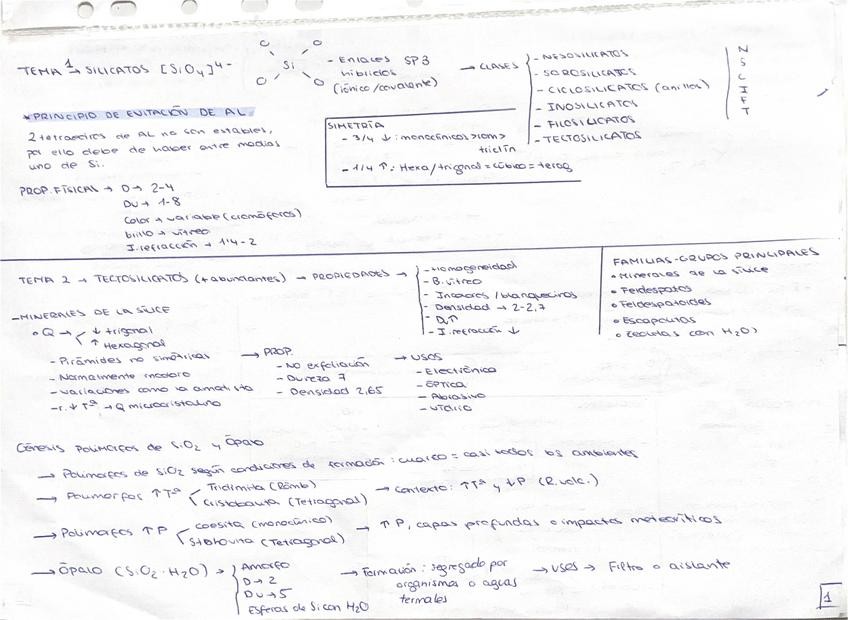 TEMA 1 → SILICATOS [SiO4]4-
O O Si O O
- Enlaces SP3
híbridos
(iónico/covalente)
→ CLASES
- NESOSILICATOS
- SOROSILICATOS
- CICLOSILICATOS (anillos)
- INOSILICATOS
- FILOSILICATOS
- TECTOSILICATOS
N
S
C
I
F
T
*PRINCIPIO DE EVITACIÓN DE AL
2 tetraedros de AL no son estables,
por ello debe de haber entre medias
uno de Si.
SIMETRÍA
- 3/4 ↓: monoclínicos > rom >
triclín
- 1/4 ↑: Hexa/trigonal = cúbico = tetrag
PROP. FÍSICAS → D → 2-4
Du → 1-8
Color → variable (cromóforos)
brillo → vítreo
I. refracción → 1'4-2
TEMA 2 → TECTOSILICATOS (+ abundantes) → PROPIEDADES →
- Homogeneidad
- B. vítreo
- Incoloros / blanquecinos
- Densidad → 2-2,7
- D. ↑
- I. refracción ↓
FAMILIAS-GRUPOS PRINCIPALES
• Minerales de la sílice
• Feldespatos
• Feldespatoides
• Escapolitas
• Zeolitas (con H2O)
- MINERALES DE LA SÍLICE
• Q → ↓ trigonal
↑ Hexagonal
- Pirámides no simétricas
- Normalmente incoloro
- Variaciones como la amatista
- r. ↓ Tª → Q microcristalino
→ PROP.
- NO exfoliación
- Dureza 7
- Densidad 2,65
→ USOS
- Electrónica
- Óptica
- Abrasivo
- Vidrio
Génesis Polimorfos de SiO2 y Ópalo
→ Polimorfos de SiO2 según condiciones de formación: cuarzo = casi todos los ambientes
→ Polimorfos ↑Tª
Tridimita (Romb)
Cristobalita (Tetragonal)
→ Contexto: ↑Tª y ↓P (R. volc.)
→ Polimorfos ↑P
Coesita (monoclínico)
Stishovita (Tetragonal)
→ ↑P, capas profundas o impactos meteoríticos
→ Ópalo (SiO2·H2O) →
Amorfo
D → 2
Du → 5
Esferas de Si con H2O
→ Formación: segregado por
organismos o aguas
termales
→ USOS → Filtro o aislante
1